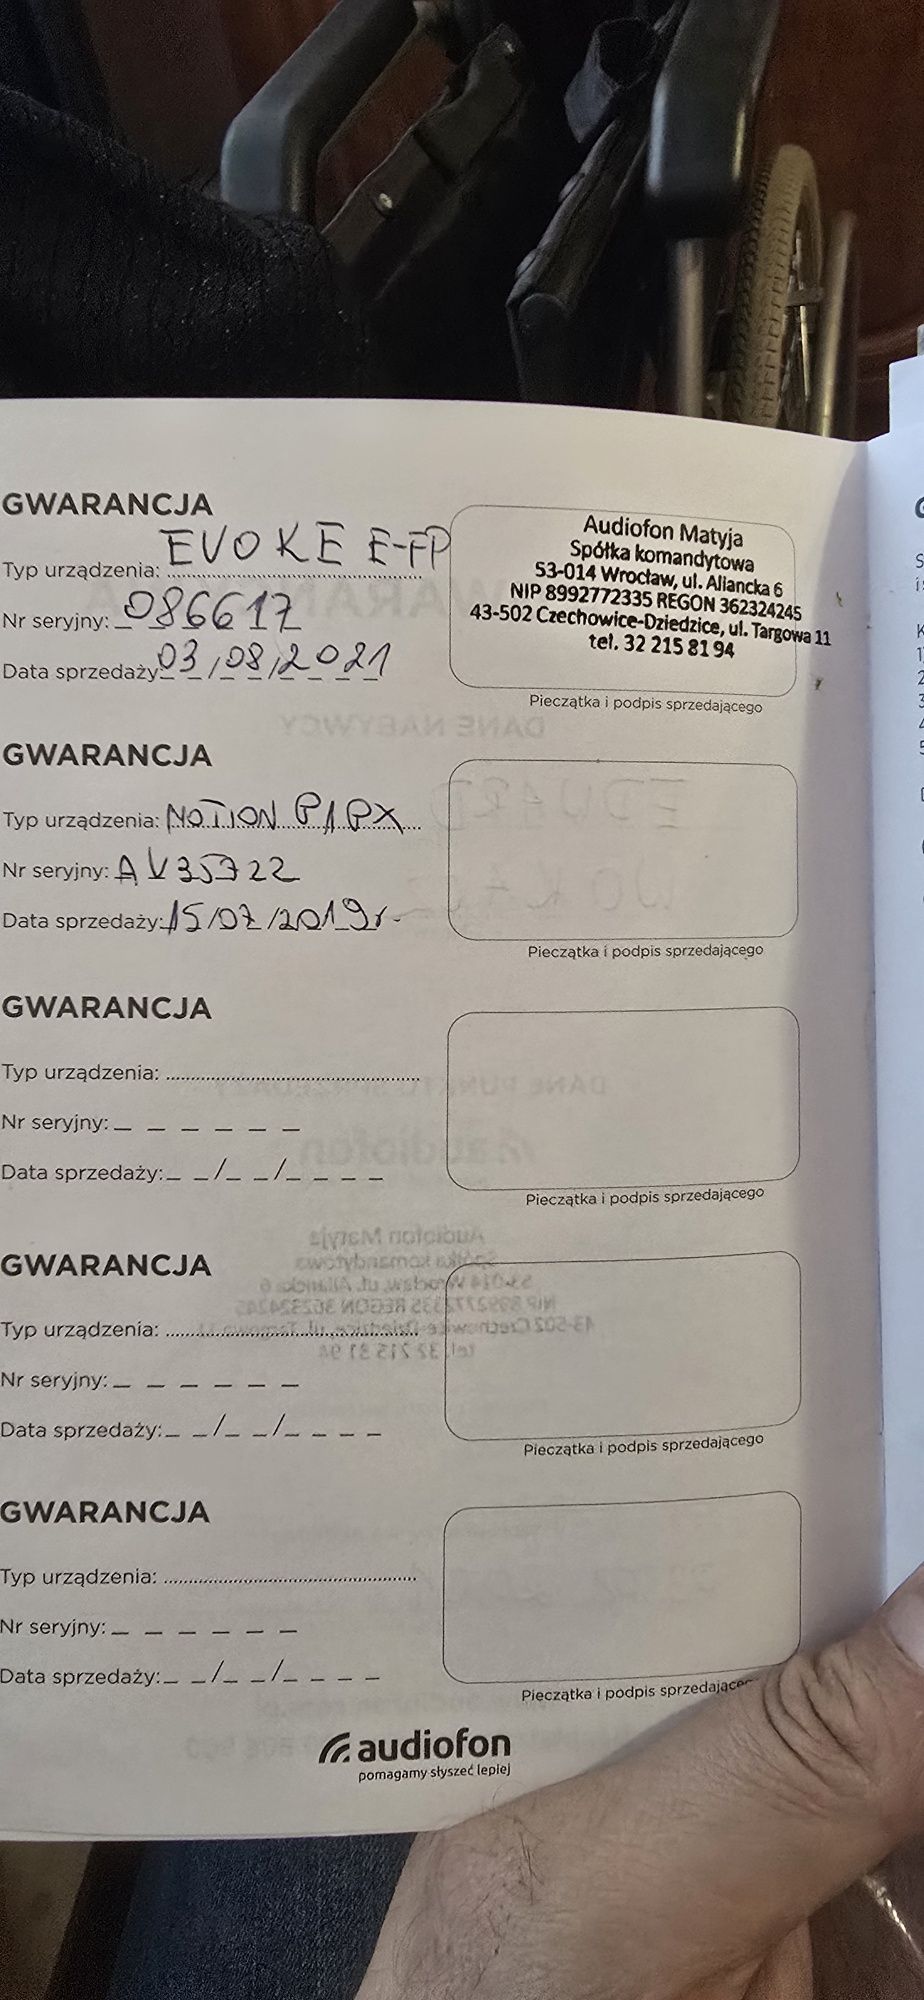 GWARANCJA
Typ urządzenia: EVOKE E-FP
Nr seryjny: 086617
Data sprzedaży 03/08/2021
Audiofon Matyja
Spółka komandytowa
53-014 Wrocław, ul. Aliancka 6
NIP 8992772335 REGON 362324245
43-502 Czechowice-Dziedzice, ul. Targowa 11
tel. 32 215 81 94
Pieczątka i podpis sprzedającego
GWARANCJA
Typ urządzenia: MOTION
Nr seryjny: AV35722
Data sprzedaży: 15/07/2019r.
Pieczątka i podpis sprzedającego
GWARANCJA
Typ urządzenia:
Nr seryjny:
Data sprzedaży: / /
Pieczątka i podpis sprzedającego
GWARANCJA
Typ urządzenia:
Nr seryjny:
Data sprzedaży: / /
Pieczątka i podpis sprzedającego
GWARANCJA
Typ urządzenia:
Nr seryjny:
Data sprzedaży: / /
Pieczątka i podpis
audiofon
pomagamy słyszeć lepiej